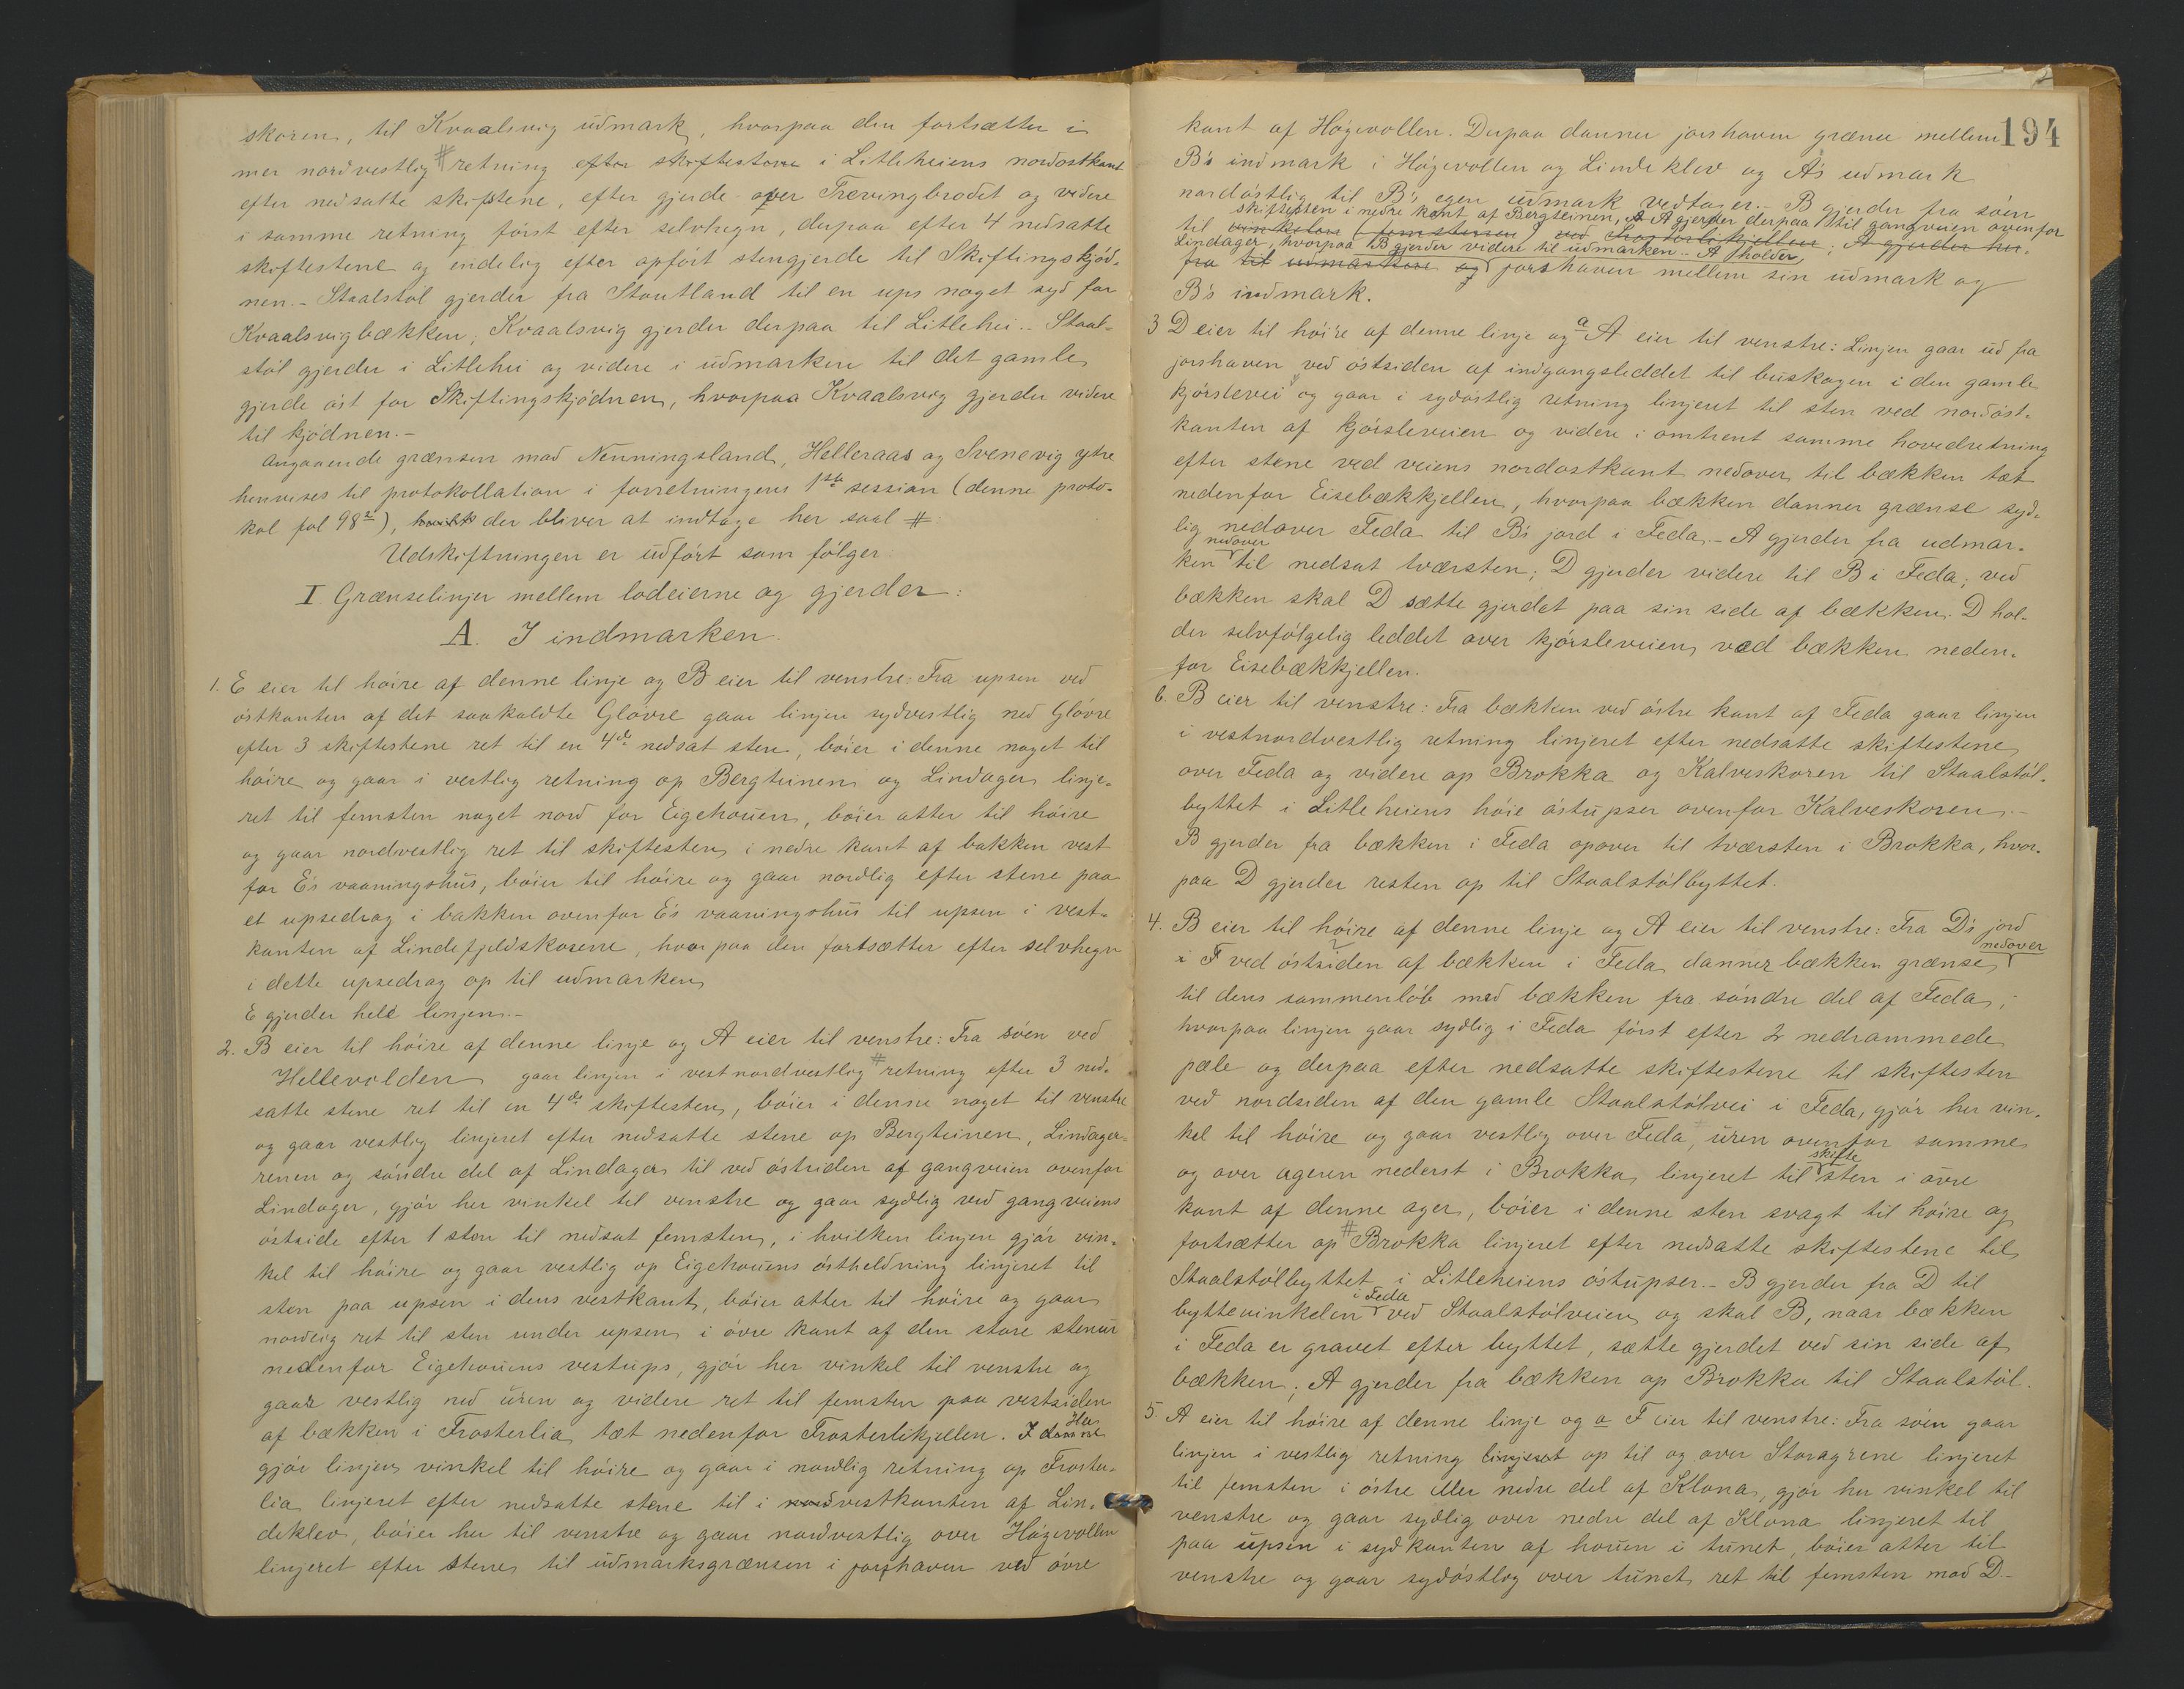 skoren, til Kvaalsvig udmark, hvorpaa den fortsætter i
mer nordvestlig # retning efter skiftestene i Litleheiens nordostkant
efter nedsatte skiftestene, efter gjerde over Trevingbrodet og videre
i samme retning först efter selvhegn, derpaa efter 4 nedsatte
skiftestene og endelig efter opfört stengjerde til Skiftingskjöd-
nen. - Staalstöl gjerder fra Stoutland til en ups noget syd for
Kvaalsvigbækken; Kvaalsvig gjerder derpaa til Litlehei. - Staal-
stöl gjerder i Litlehei og videre i udmarken til det gamle
gjerde öst for Skiftingskjödnen, hvorpaa Kvaalsvig gjerder videre
til kjödnen. -
Angaaende grænsen mod Nenningsland, Helleraas og Svenevig ytre
henvises til protokollation i forretningens 1ste session (denne proto-
kol fol 98 2), der bliver at indtage her saal #:
Udskiftningen er udfört som fölger:
I Grænselinjer mellem lodeierne og gjerder:
A. I indmarken.
1. E eier til höire af denne linje og B eier til venstre: Fra upsen ved
östkanten af det saakaldte Glövre gaar linjen sydvestlig ned Glövre
efter 3 skiftestene ret til en 4de nedsat sten, böier i denne noget til
höire og gaar i vestlig retning op Bergteinen og Lindager linje-
ret til femsten noget nord for Eigehouen, böier atter til höire
og gaar nordvestlig ret til skiftesten i nedre kant af bakken vest
for E's vaaningshus, böier til höire og gaar nordlig efter stene paa
et upsedrag i bakken ovenfor E's vaaningshus til upsen i vest-
kanten af Lindefjeldskorene, hvorpaa den fortsætter efter selvhegn
i dette upsedrag op til udmarken
E gjerder hele linjen. -
2. B eier til höire af denne linje og A eier til venstre: Fra söen ved
Hellevolden gaar linjen i vestnordvestlig # retning efter 3 ned-
satte stene ret til en 4de skiftesten, böier i denne noget til venstre
og gaar vestlig linjeret efter nedsatte stene op Bergteinen, Lindager-
renen og söndre del af Lindager til ved östsiden af gangveien ovenfor
Lindager, gjör her vinkel til venstre og gaar sydlig ved gangveiens
östside efter 1 sten til nedsat femsten, i hvilken linjen gjör vin-
kel til höire og gaar vestlig op Eigehouens östheldning linjeret til
sten paa upsen i dens vestkant, böier atter til höire og gaar
nordlig ret til sten under upsen i övre kant af den store stenur
nedenfor Eigehouens vestups, gjör her vinkel til venstre og
gaar vestlig ned uren og videre ret til femsten paa vestsiden
af bækken i Frosterlia tæt nedenfor Frosterlikjellen. I denne Her
gjör linjen vinkel til höire og gaar i nordlig retning op Froster-
lia linjeret efter nedsatte stene til i nordvestkanten af Lin-
deklev, böier her til venstre og gaar nordvestlig over Högevollen
linjeret efter stene til udmarksgrænsen i jorshaven ved övre
194
kant af Högevollen. Derpaa danner jorshaven grænse mellem
B's indmark i Högevollen og Lindeklev og A's udmark
nordöstlig til B's egen udmark vedtager. - B gjerder fra söen
skiftesten i nedre kant af Bergteinen, A gjerder derpaa til gangveien ovenfor
til vinkelen (femstenen) ved Frosterlikjellen; A gjerder her-
Lindager, hvorpaa B gjerder videre til udmarken. - A holder
fra til udmarken og jorshaven mellem sin udmark og
B's indmark.
3 D eier til höire af denne linje og a A eier til venstre: Linjen gaar ud fra
jorshaven ved östsiden af indgangsleddet til buskogen i den gamle
kjörslevei og gaar i sydöstlig retning linjeret til sten ved nordöst-
kanten af kjörsleveien og videre i omtrent samme hovedretning
efter stene ved veiens nordostkant nedover til bækken tæt
nedenfor Eisebækkjellen, hvorpaa bækken danner grænse syd-
lig nedover Feda til B's jord i Feda. - A gjerder fra udmar-
nedover
ken til nedsat tværsten; D gjerder videre til B i Feda; ved
bækken skal D sætte gjerdet paa sin side af bækken. D hol-
der selvfölgelig leddet over kjörsleveien ved bækken neden-
for Eisebækkjellen.
6. B eier til venstre: Fra bækken ved östre kant af Feda gaar linjen
i vestnordvestlig retning linjeret efter nedsatte skiftestene
over Feda og videre op Brokka og Kalveskoren til Staalstöl-
byttet i Litleheiens höie östupser ovenfor Kalveskoren. -
B gjerder fra bækken i Feda opover til tværsten i Brokka, hvor-
paa D gjerder resten op til Staalstölbyttet.
4. B eier til höire af denne linje og A eier til venstre: Fra D's jord
nedover
i F ved östsiden af bækken i Feda danner bækken grænse
til dens sammenlöb med bækken fra söndre del af Feda,
hvorpaa linjen gaar sydlig i Feda först efter 2 nedrammede
pæle og derpaa efter nedsatte skiftestene til skiftesten
ved nordsiden af den gamle Staalstölvei i Feda, gjör her vin-
kel til höire og gaar vestlig over Feda, uren ovenfor samme
skifte
og over ageren nederst i Brokka linjeret til sten i övre
kant af denne ager, böier i denne sten svagt til höire og
fortsætter op # Brokka linjeret efter nedsatte skiftestene til
Staalstölbyttet i Litleheiens östupser. - B gjerder fra D til
i Feda
byttevinkelen ved Staalstölveien og skal B, naar bækken
i Feda er gravet efter byttet, sætte gjerdet ved sin side af
bækken; A gjerder fra bækken op Brokka til Staalstöl.
5. A eier til höire af denne linje og a F eier til venstre: Fra söen gaar
linjen i vestlig retning linjeret op til og over Storagrene linjeret
til femsten i östre eller nedre del af Klona, gjör her vinkel til
venstre og gaar sydlig over nedre del af Klona linjeret til
paa upsen i sydkanten af houen i tunet, böier atter til
venstre og gaar sydöstlig over tunet ret til femsten mod D. -